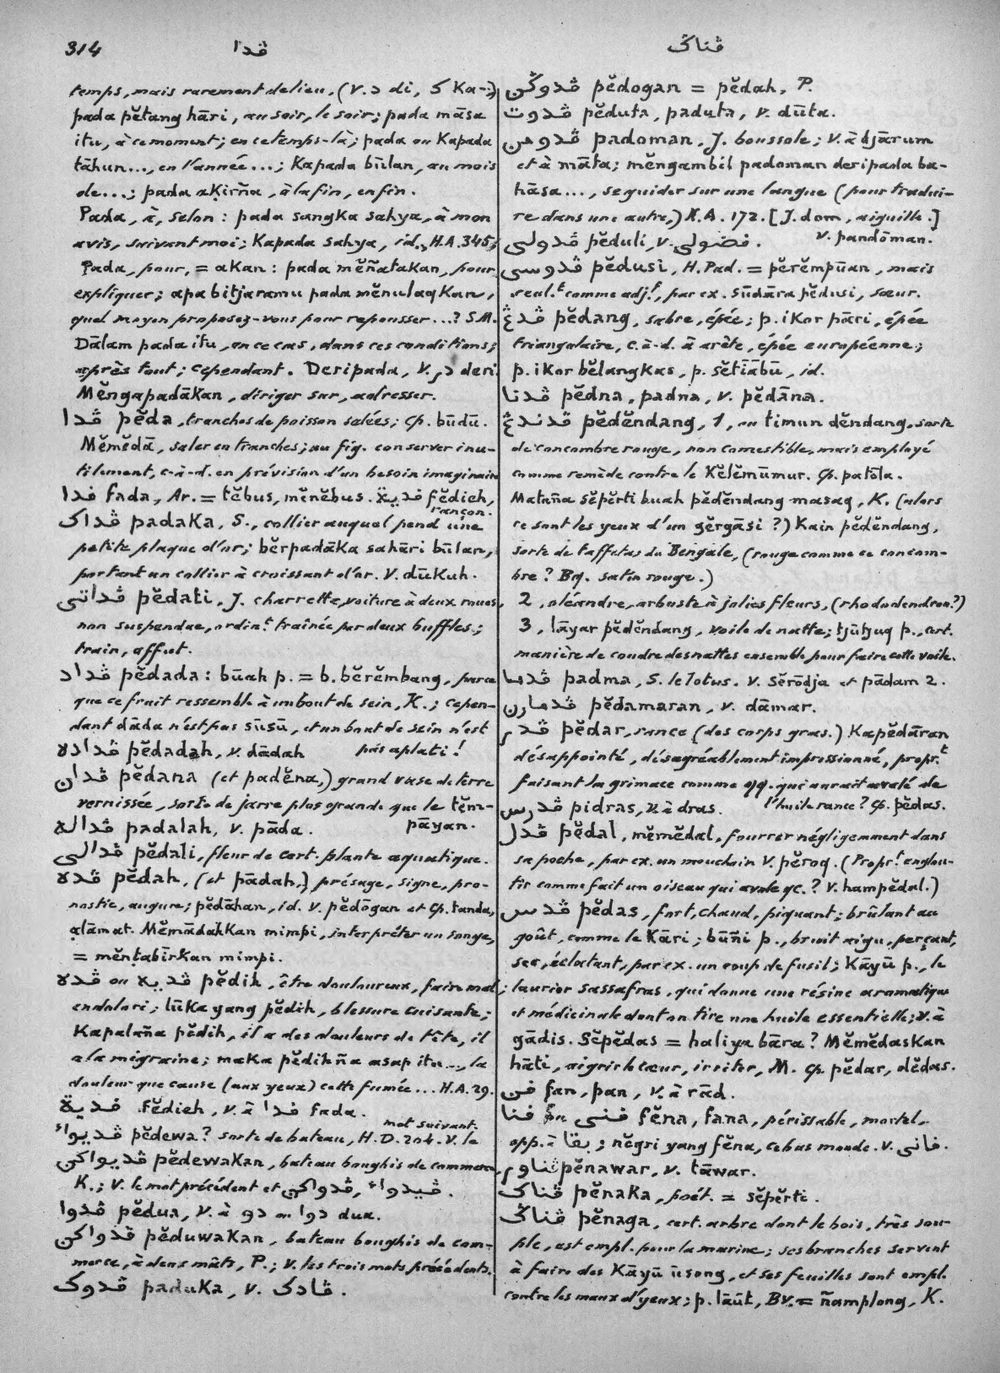 314
ڤدا
ڤناݢ
temps, mais rarement de lieu, (V. د di, ک Ka-;)
pada pĕtang hāri, au soir, le soir; pada māsa
itu, à ce moment; en ce temps-là; pada ou Kapada
tāhun..., en l'année...; Kapada būlan, au mois
de...; pada aḳirña, à la fin, enfin.
Pada, à, selon: pada sangka sahya, à mon
avis, suivant moi; Kapada sahya, id., H.A. 345;
Pada, pour, = aKan: pada mĕñataKan, pour
expliquer; apa bitjaramu pada mĕnulaqKan,
quel moyen proposez-vous pour repousser...? S.M.
Dālam pada itu, en ce cas, dans ces conditions;
après tout; cependant. Deripada, V. در deri.
MĕngapadāKan, diriger sur, adresser.
ڤدا pĕda, tranches de poisson salées; Cp. būdū.
Mĕmĕdā, saler en tranches; au fig. conserver inu-
tilement, c-à-d. en prévision d'un besoin imaginaire
فدا fada, Ar. = tĕbus, mĕnĕbus. فدية fĕdieh,
rançon.
ڤداک padaKa, S., collier auquel pend une
petite plaque d'or; bĕrpadāKa sahāri būlan,
portant un collier à croissant d'or. V. dūKuh.
ڤداتي pĕdati, J. charrette, voiture à deux roues
non suspendue, ordin.t traînée par deux buffles;
train, affut.
ڤداد pĕdada: būah p. = b. bĕrĕmbang, parce
que ce fruit ressemble à un bout de sein, K.; cepen-
dant dāda n'est pas sūsū, et un bout de sein n'est
pas aplati!
ڤداده pĕdadah, v. dādah
ڤدان pĕdana (et padĕna,) grand vase de terre
vernissée, sorte de jarre plus grande que le tĕm-
pāyan.
ڤداله padalah, v. pāda.
ڤدالي pĕdali, fleur de cert. plante aquatique.
ڤده pĕdah, (et pādah,) présage, signe, pro-
nostic, augure; pĕdāhan, id. V. pĕdōgan et Cp. tanda,
ạlāmat. MĕmādahKan mimpi, interpréter un songe,
= mĕnṭabīrKan mimpi.
ڤده ou ڤديه pĕdih, être douloureux, faire mal;
endolori; lūKa yang pĕdih, blessure cuisante;
Kapalāña pĕdih, il a des douleurs de tête, il
a la migraine; maKa pĕdihña asap itu..., la
douleur que cause (aux yeux) cette fumée... H.A. 29.
فدية fĕdieh, V. à فدا fada.
ڤديوا pĕdewa? sorte de bateau, H.D. 204. V. le
mot suivant.
ڤديواكن pĕdewaKan, bateau boughis de commerce,
K.; V. le mot précédent et ڤدواكن, ڤيدوا.
ڤدوا pĕdua, V. à دو ou دوا dua.
ڤدواكن pĕduwaKan, bateau boughis de com-
merce, à deux mâts, P.; V. les trois mots précédents.
ڤدوک paduKa, V. ڤادک.
ڤدوݢن pĕdogan = pĕdah, P.
ڤدوت pĕduta, paduta, v. dūta.
ڤدومن padoman, J. boussole; V. à djārum
et à māta; mĕngambil padoman deripada ba-
hāsa..., se guider sur une langue (pour tradui-
re dans une autre,) H.A. 172. [J. dom, aiguille.]
v. pandōman.
ڤدولي pĕduli, v. فضولي.
ڤدوسي pĕdusi, H. Pad. = pĕrĕmpūan, mais
seul.t comme adj.f, par ex. sūdāra pĕdusi, sœur.
ڤدڠ pĕdang, sabre, épée; p. iKor pāri, épée
triangulaire, c.-à-d. à arête, épée européenne;
p. iKor bĕlangKas, p. sĕtīābū, id.
ڤدنا pĕdna, padna, v. pĕdāna.
ڤدندڠ pĕdĕndang, 1, ou timun dĕndang, sorte
de concombre rouge, non comestible, mais employé
comme remède contre le Kĕlĕmūmur. Cp. patōla.
Mataña sĕpĕrti buah pĕdĕndang masaq, K. (alors
ce sont les yeux d'un gĕrgāsi?) Kain pĕdĕndang,
sorte de taffetas du Bengale, (rouge comme ce concom-
bre? Bg. satin rouge.)
2, oléandre, arbuste à jolies fleurs, (rhododendron?)
3, lāyar pĕdĕndang, voile de natte; tjūtjuq p., cert.
manière de coudre des nattes ensemble pour faire cette voile.
ڤدما padma, S. le lotus. V. Sĕrōdja et pādam 2.
ڤدمارن pĕdamaran, v. dāmar.
ڤدر pĕdar, rance (des corps gras.) Kapĕdāran
désappointé, désagréablement impressionné, propr.t
faisant la grimace comme qq. qui aurait avalé de
l'huile rance? Cp. pĕdas.
ڤدرس pidras, v. à dras.
ڤدل pĕdal, mĕmĕdal, fourrer négligemment dans
sa poche, par ex. un mouchoir V. pĕroq. (Propr.t englou-
tir comme fait un oiseau qui avale qc.? V. hampĕdal.)
ڤدس pĕdas, fort, chaud, piquant; brûlant au
goût, comme le Kāri; būñi p., bruit aigu, perçant,
sec, éclatant, par ex. un coup de fusil; Kāyū p., le
laurier sassafras, qui donne une résine aromatique
et médicinale dont on tire une huile essentielle; v. à
gādis. Sĕpĕdas = haliya bāra? MĕmĕdasKan
hāti, aigrir le cœur, irriter, M. Cp. pĕdar, dĕdas.
فن fan, pan, v. à rād.
فنا ou فني fĕna, fana, périssable, mortel,
opp. à بقا; nĕgri yang fĕna, ce bas monde. V. فاني.
ڤناور pĕnawar, v. tāwar.
ڤناک pĕnaKa, poét. = sĕpĕrti.
ڤناݢ pĕnaga, cert. arbre dont le bois, très sou-
ple, est empl. pour la marine; ses branches servent
à faire des Kāyū ūsong, et ses feuilles sont empl.
contre les maux d'yeux; p. lāūt, Bv. = ñamplong, K.